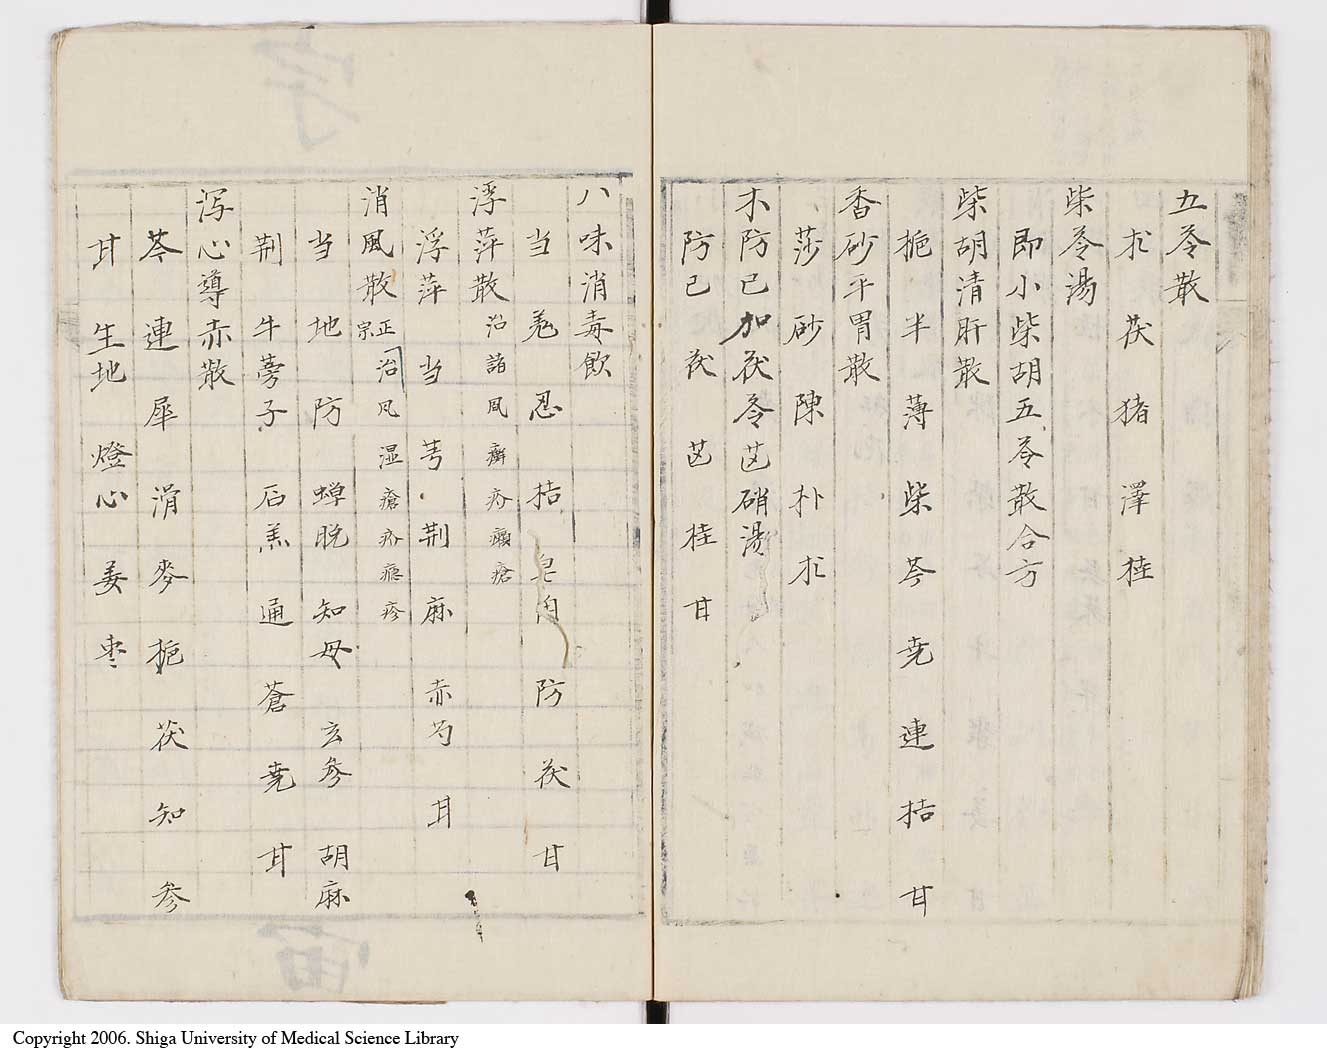 五苓散
朮 茯 猪 澤 桂
柴苓湯
即小柴胡五苓散合方
柴胡清肝散
梔 半 薄 柴 芩 芎 連 桔 甘
香砂平胃散
莎 砂 陳 朴 朮
木防己加茯苓芒硝湯
防己 茯 芒 桂 甘
八味消毒飲
当 羌 忍 桔 皂角 防 茯 甘
浮萍散 治諸風癬疥癩瘡
浮萍 当 芎 荆 麻 赤芍 甘
消風散 正宗 治風湿瘡疥瘾疹
当 地 防 蝉脱 知母 玄参 胡麻
荆 牛蒡子 石羔 通 蒼 甘
泻心導赤散
芩 連 犀 滑 麥 梔 茯 知 参
甘 生地 燈心 姜 枣
Copyright 2006. Shiga University of Medical Science Library